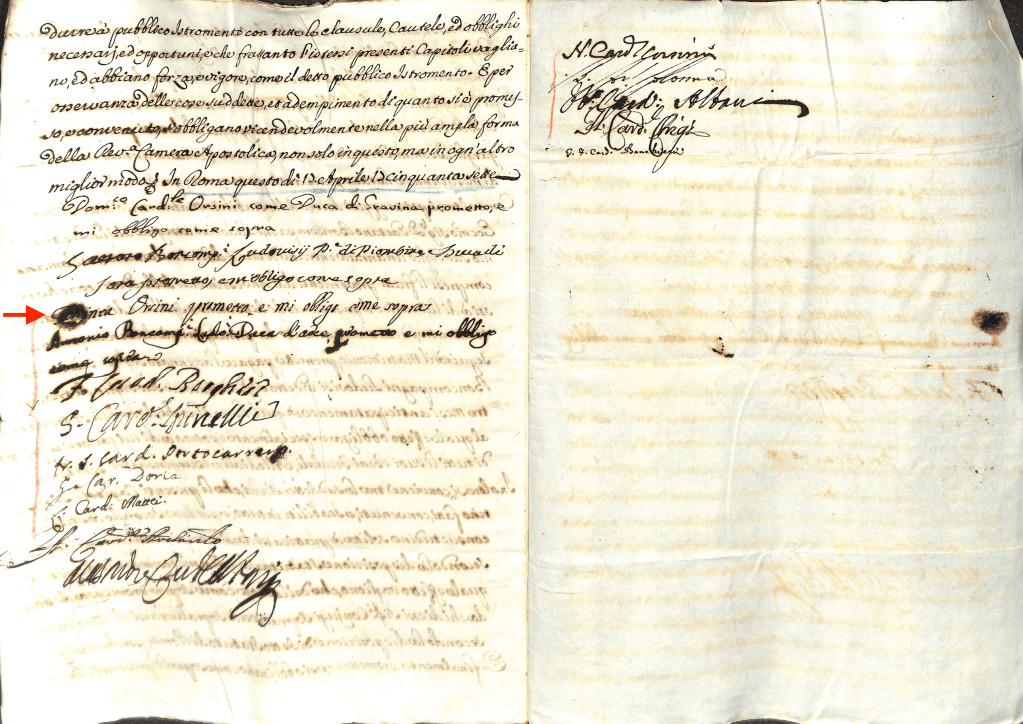 durrà à pubblico Istromento con tutte le clausule, Cautele, ed obblighi
necessarij, ed opportuni, e che frattanto l'istessi presenti Capitoli vaglia-
no, ed abbiano forza, e vigore, come il detto pubblico Istromento. E per
osservanza delle cose suddette, ed adempimento di quanto si è promes-
so, e convenuto, s'obbligano vicendevolmente nella più ampla forma
della Rev.a Camera Apostolica, non solo in questo, ma in ogn'altro
miglior modo In Roma questo dì 17 Aprile 17 cinquanta sette
Dom.co Card.le Orsini come Duca di Gravina prometto, e
mi obbligo come sopra
Gaetano Boncomp.i Ludovisij P.e di Piombino e Duca di
Sora prometto, e m'obligo come sopra
Orsini prometto, e mi obligo come sopra
Antonio Boncomp.i Ludo: Duca d'arce prometto e mi obbligo
come sopra
F. Card. Borghese
G. Card. Spinelli
fr. J. Card. Portocarrero
G. Car. Doria
L. Card. Mattei.
Card. Archinto
Alessandro Card. Albani
N. Card. Corsini
Colonna
Card. Albani
Fl. Card. Chigi
Card.